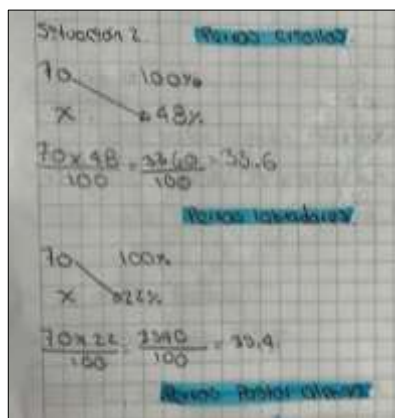 Situación 2. Perros criollos
70 100%
x 48%
70 x 48 = 3360 = 33.6
100 100
Perros labradores
70 100%
x 22%
70 x 22 = 1540 = 15.4
100 100
Perros Pastor alemán